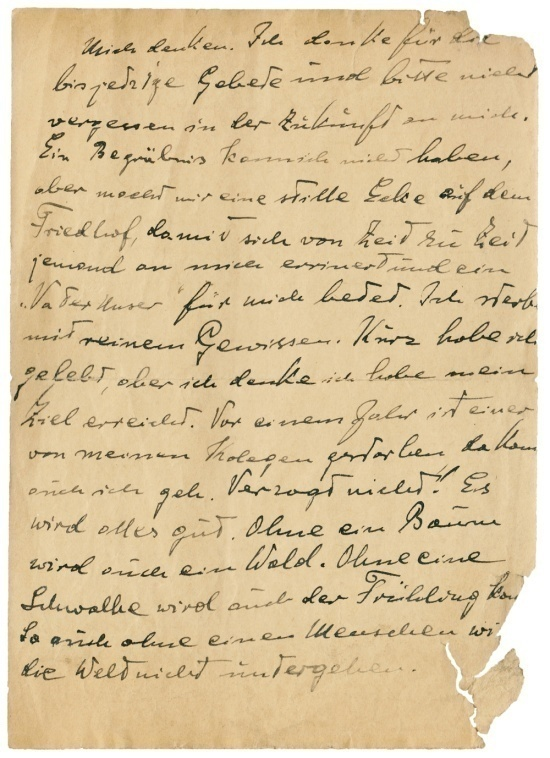 mich denken. Ich danke für die
bisjedzige Gebede und bitte nicht
vergessen in der Zukunft an mich.
Ein Begräbnis kannich nicht haben,
aber macht mir eine stille Ecke auf dem
Friedhof, damit sich von Zeid zu Zeid
jemand an mich errinert und ein
"Vaderunser" für mich beded. Ich sterbe
mit reinem Gewissen. Kurz habe ich
gelebd, aber ich denke ich habe mein
Ziel erreichd. Vor einem Jahr ist einer
von meinen Kolegen gestorben da kann
auch ich geh. Verzagt nicht! Es
wird alles gut. Ohne ein Baum
wird auch ein Wald. Ohne eine
Schwalbe wird auch der Frühling
So auch ohne einen Menschen wi
die Weld nicht undergehen.